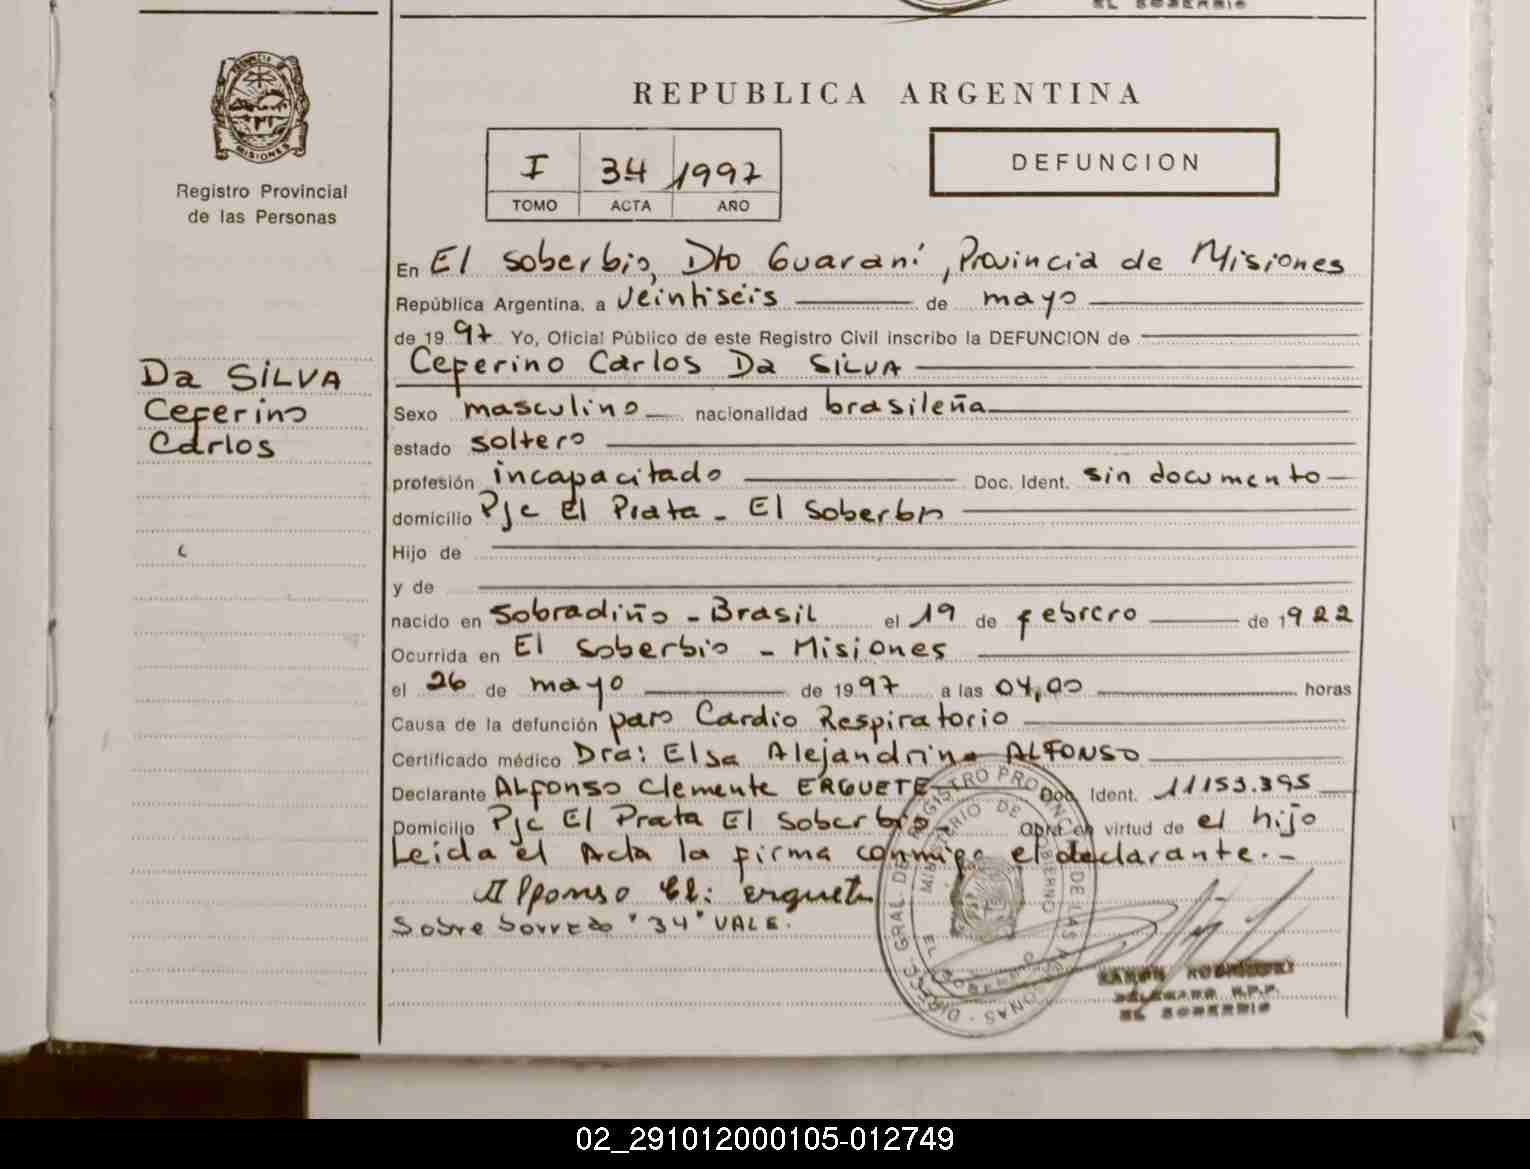 EL SOBERBIO
PROVINCIA DE
MISIONES
Registro Provincial
de las Personas
REPUBLICA ARGENTINA
I 34 1997
TOMO ACTA AÑO
DEFUNCION
En El Soberbio, Dto Guaraní, Provincia de Misiones
República Argentina, a veintiseis de mayo
de 1997 Yo, Oficial Público de este Registro Civil inscribo la DEFUNCION de
Ceferino Carlos Da SILVA
Da SILVA
Ceferino
Carlos
Sexo masculino nacionalidad brasileña
estado soltero
profesión incapacitado Doc. Ident. sin documento
domicilio Pje El Prata - El Soberbio
Hijo de
y de
nacido en Sobradiño - Brasil el 19 de febrero de 1922
Ocurrida en El Soberbio - Misiones
el 26 de mayo de 1997 a las 04,00 horas
Causa de la defunción paro Cardio Respiratorio
Certificado médico Dra: Elsa Alejandrina ALFONSO
Declarante Alfonso Clemente ERGUETE Doc. Ident. 11153.395
Domicilio Pje El Prata El Soberbio Obra en virtud de el hijo
Leida el Acta la firma conmigo el declarante.-
Alfonso Cl: erguete
Sobre borrado "34" VALE.
DIREC. GRAL. DE REGISTRO PROVINC. DE LAS PERSONAS
MINISTERIO DE GOBERNO
EL SOBERBIO
RAMON RODRIGUEZ
DELEGADO R.P.P.
EL SOBERBIO
02_291012000105-012749